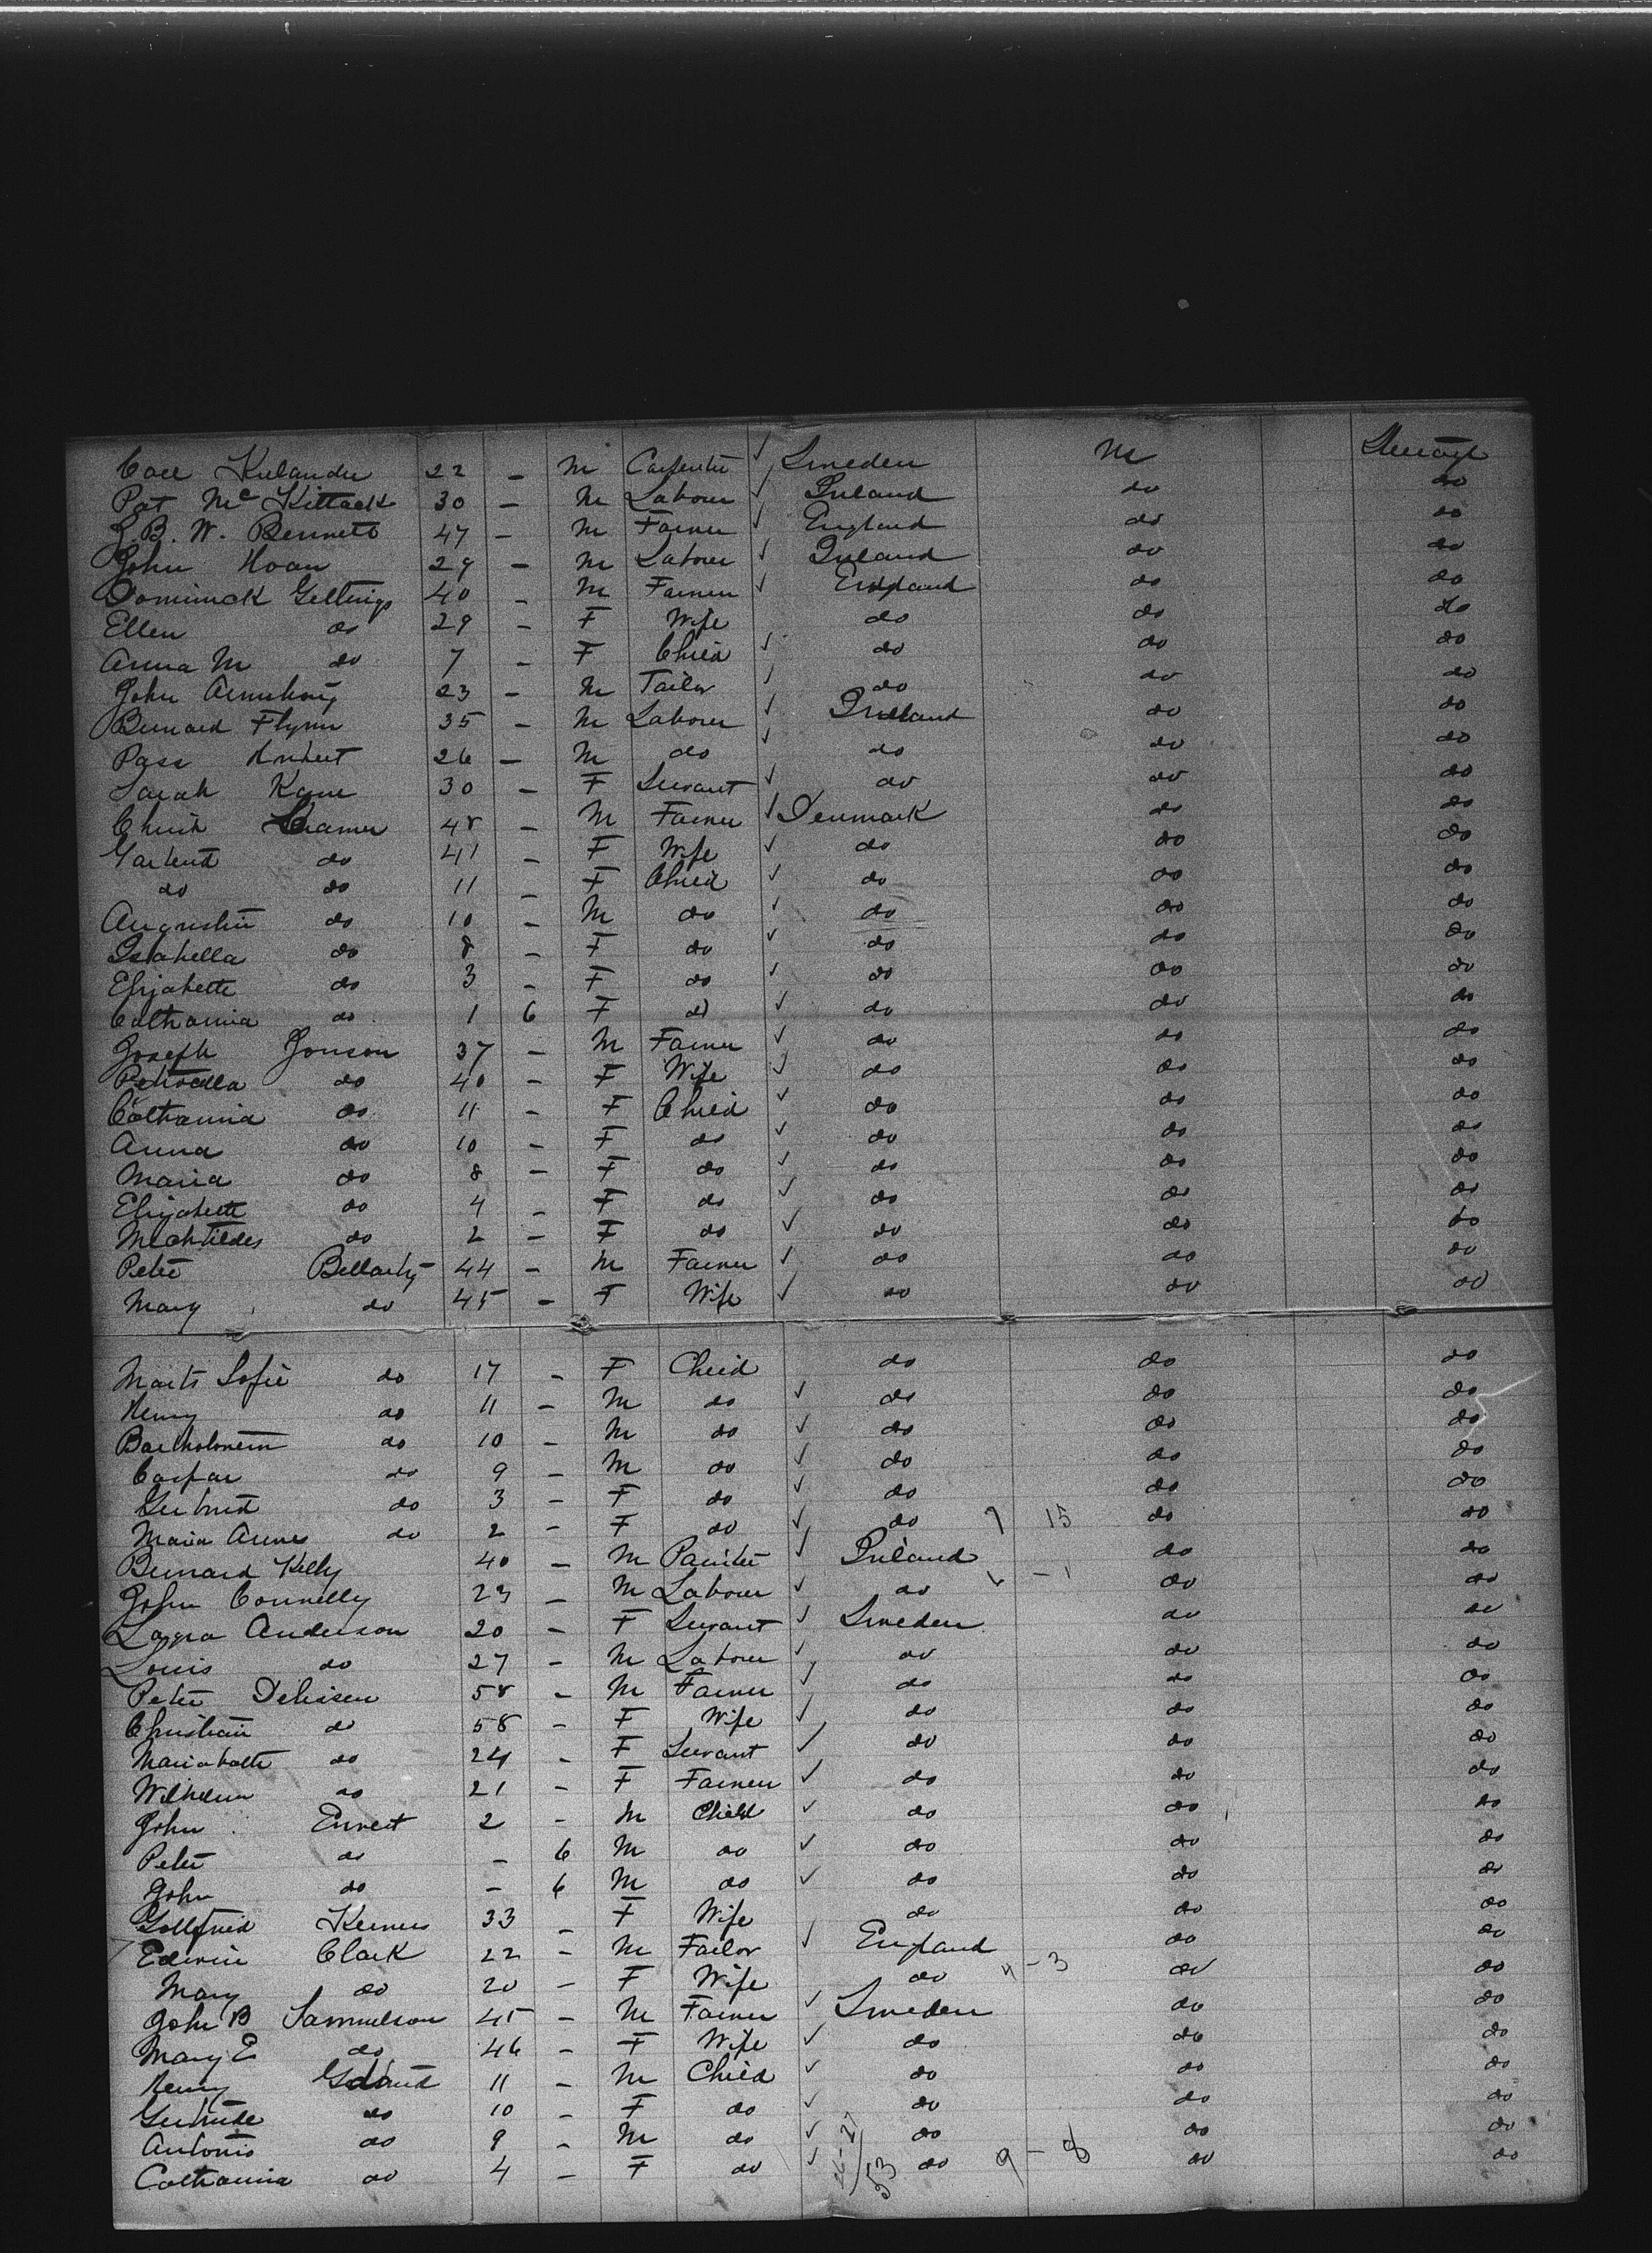 Carl Kulander 22 - M Carpenter ✓ Sweden M
Pat McKittack 30 - M Labourer ✓ Ireland do do
J.B.W. Bennett 47 - M Farmer ✓ England do do
John Hoan 29 - M Labourer ✓ Ireland do do
Dominick Gettings 40 - M Farmer ✓ England do do
Ellen do 29 - F Wife do do do
Anna M do 7 - F Child ✓ do do do
John Armstrong 23 - M Tailor ✓ do do do
Bernard Flynn 35 - M Labourer ✓ Ireland do do
Pass 26 - M do ✓ do do do
Sarah Kane 30 - F Servant ✓ do do do
Christ Cramer 48 - M Farmer ✓ Denmark do do
do 41 - F Wife ✓ do do do
do do 11 - F Child ✓ do do do
Augustin do 10 - M do ✓ do do do
Isabella do 8 - F do ✓ do do do
Elizabette do 3 - F do ✓ do do do
Catharina do 1 6 F do ✓ do do do
Joseph Jonson 37 - M Farmer ✓ do do do
Petroella do 40 - F Wife ✓ do do do
Catharina do 11 - F Child ✓ do do do
Anna do 10 - F do ✓ do do do
Maria do 8 - F do ✓ do do do
Elizabette do 4 - F do ✓ do do do
Mechtildes do 2 - F do ✓ do do do
Peter Bellarby 44 - M Farmer ✓ do do do
Mary do 45 - F Wife ✓ do do do
Sofie do 17 - F Child do do do
Henry do 11 - M do ✓ do do do
Bartholomem do 10 - M do ✓ do do do
Caspar do 9 - M do ✓ do do do
Gertrud do 3 - F do ✓ do do do
Maria Annes do 2 - F do ✓ do 7 15 do do
Bernard Kelly 40 - M Painter ✓ Ireland do do
John Connelly 23 - M Labourer ✓ do 6 - 1 do do
Anderson 20 - F Servant ✓ Sweden do do
Louis do 27 - M Labourer ✓ do do do
Peter 58 - M Farmer ✓ do do do
Christian do 58 - F Wife ✓ do do do
do 24 - F Servant ✓ do do do
Wilhelm do 21 - F Farmer ✓ do do do
John Envert 2 - M Child ✓ do do do
Peter do - 6 M do ✓ do do do
John do - 6 M do ✓ do do do
Gottfried 33 - F Wife do do do
Edwin Clark 22 - M Tailor ✓ England do do
Mary do 20 - F Wife do 4 - 3 do do
John B Samuelson 45 - M Farmer ✓ Sweden do do
Mary E do 46 - F Wife ✓ do do do
Henry 11 - M Child ✓ do do do
Gertrude do 10 - F do ✓ do do do
Antonio do 9 - M do ✓ do do do
Catharina do 4 - F do ✓ 53 do 9 - 8 do do